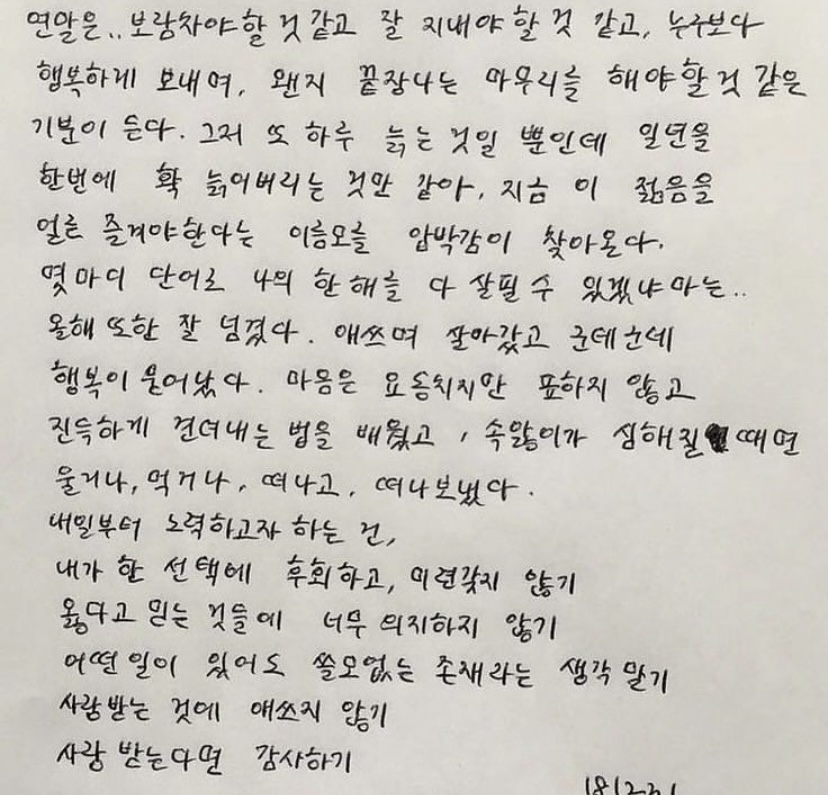 연말은.. 보람차야할 것 같고 잘 지내야 할 것 같고, 누구보다
행복하게 보내며, 왠지 끝장나는 마무리를 해야할 것 같은
기분이 든다. 그저 또 하루 늙는 것일 뿐인데 일년을
한번에 확 늙어버리는 것만 같아, 지금 이 젊음을
얼른 즐겨야한다는 이름모를 압박감이 찾아온다.
몇마디 단어로 나의 한 해를 다 살필 수 있겠냐마는..
올해 또한 잘 넘겼다. 애쓰며 살아갔고 군데군데
행복이 묻어났다. 마음은 요동치지만 표하지 않고
진득하게 견뎌내는 법을 배웠고, 속앓이가 심해질 때면
울거나, 먹거나, 떠나고, 떠나보냈다.
내일부터 노력하고자 하는 건,
내가 한 선택에 후회하고, 미련갖지 않기
옳다고 믿는 것들에 너무 의지하지 않기
어떤일이 있어도 쓸모없는 존재라는 생각 말기
사랑받는 것에 애쓰지 않기
사랑 받는다면 감사하기
181231